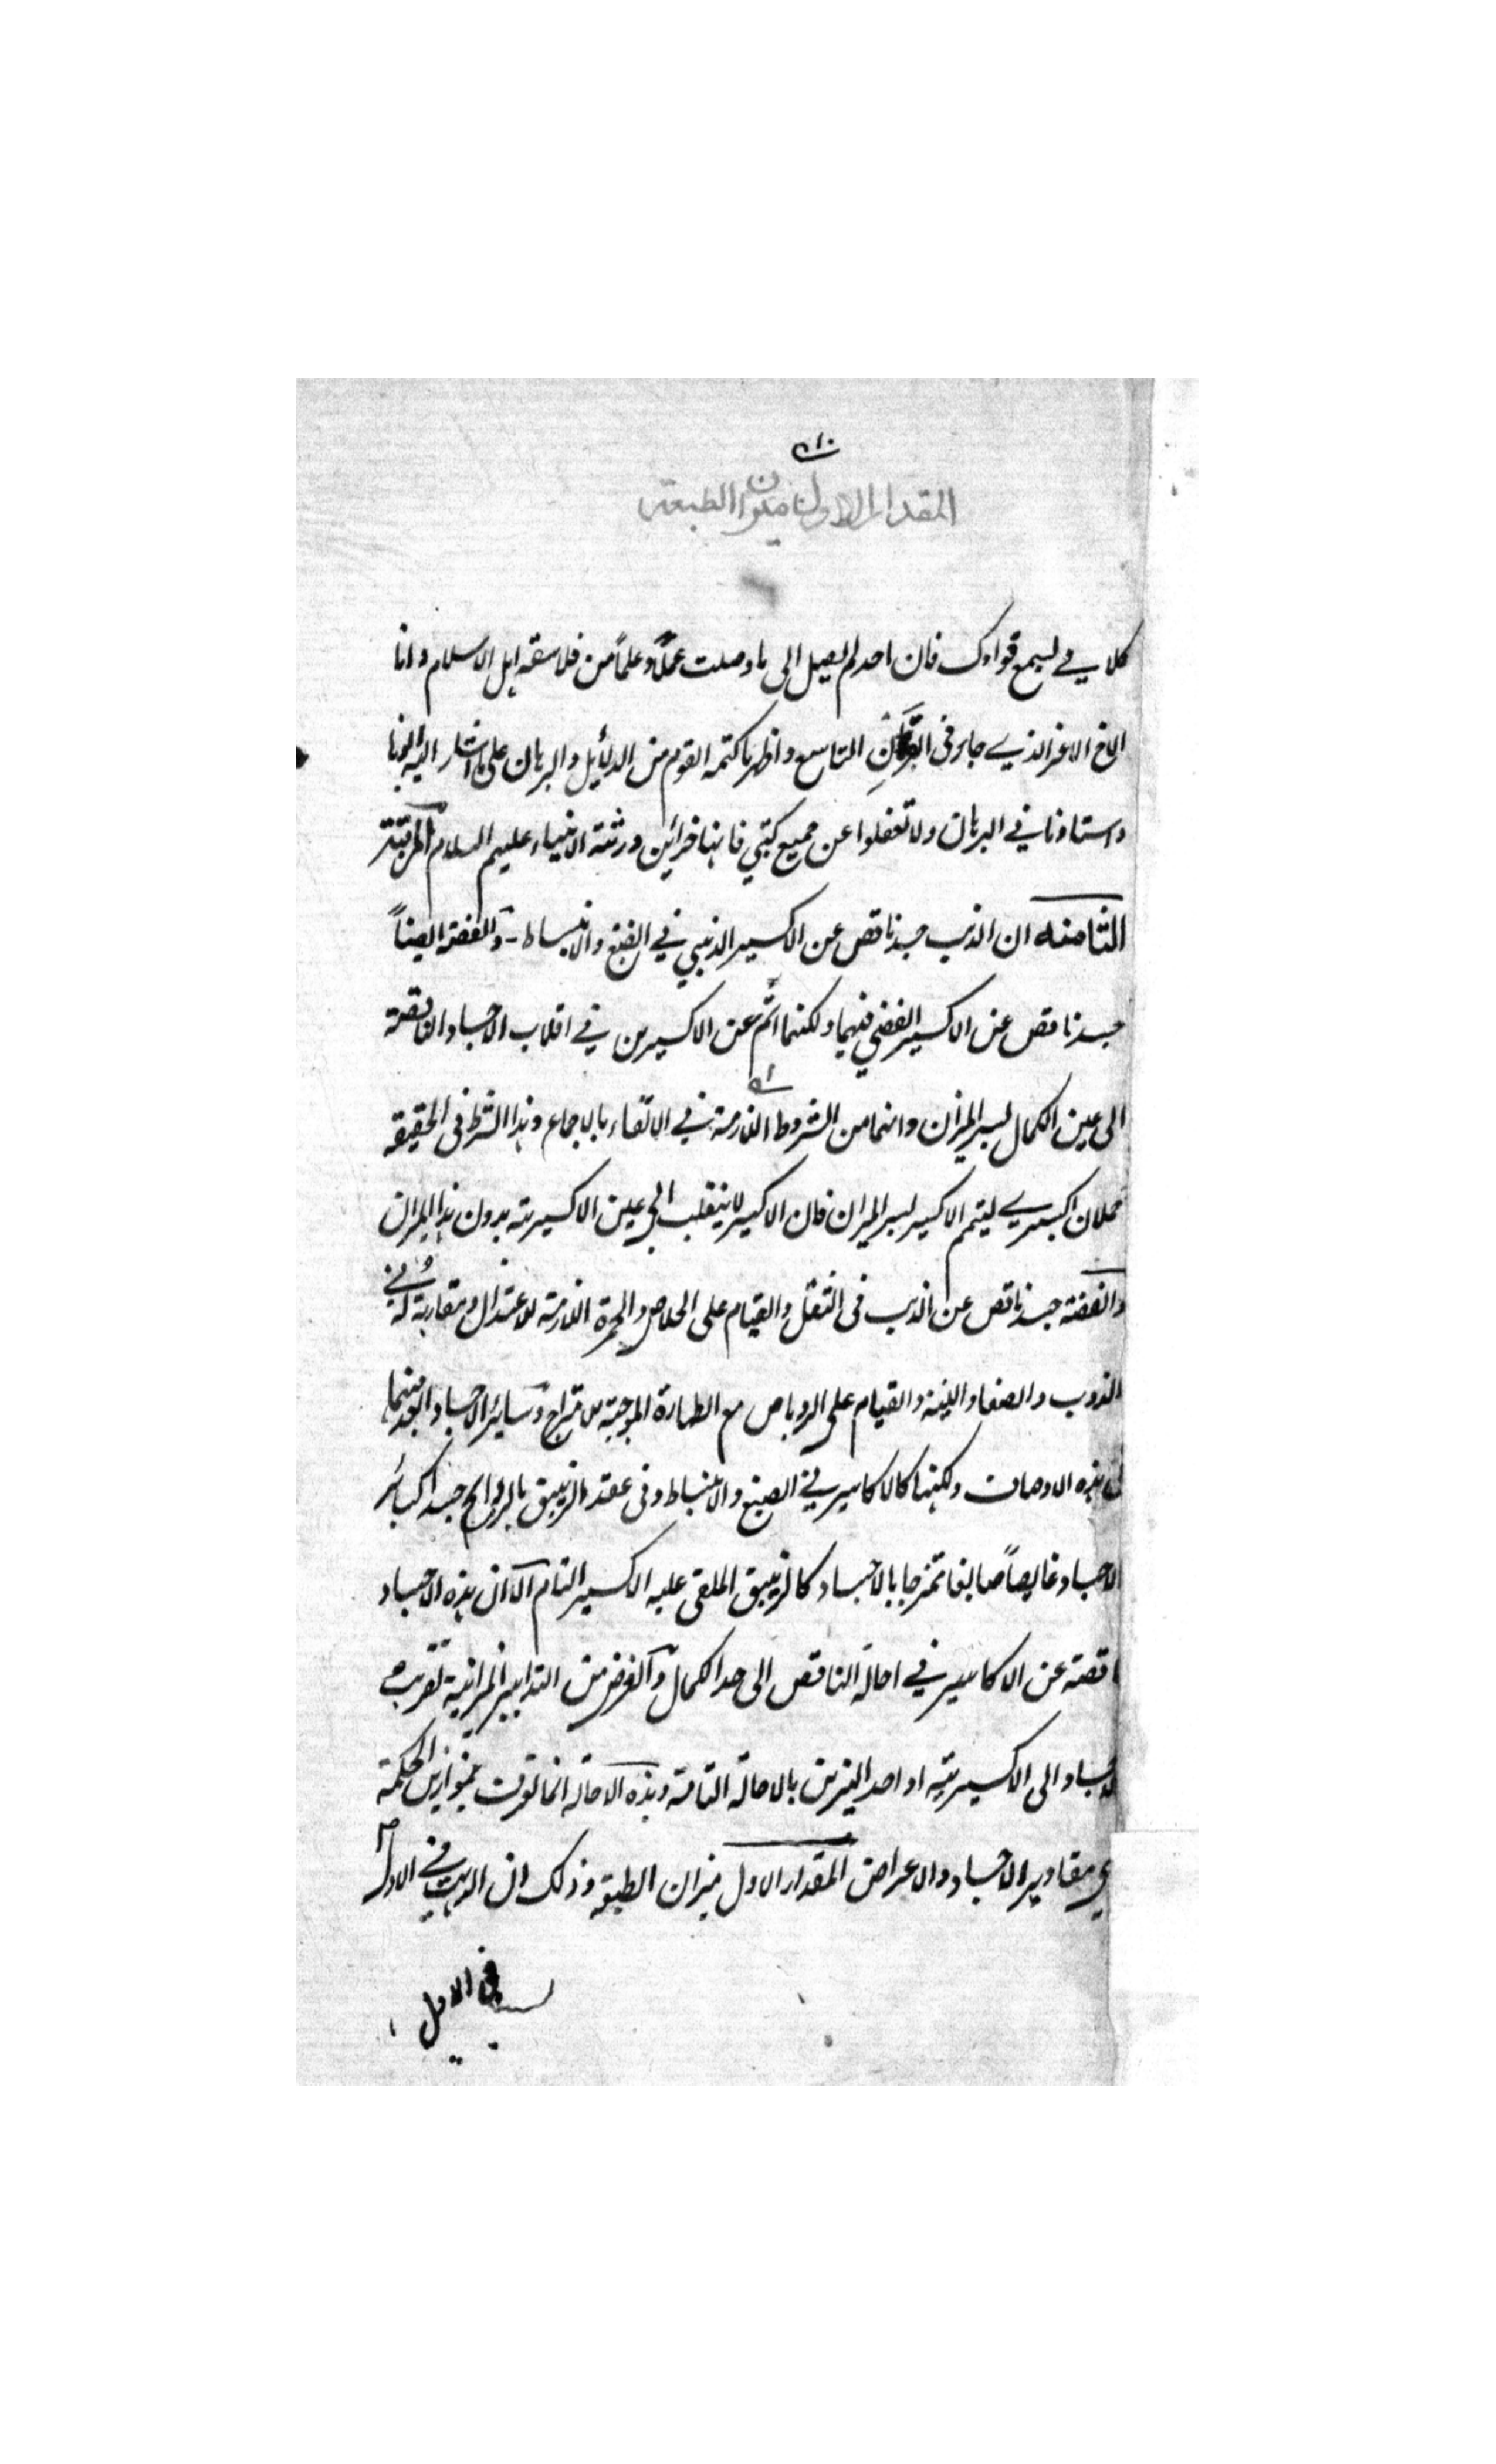 المقدار الاول ميزان الطبيعة
كلامي لسمع قوادك فان احد لم يصل الى ما وصلت عملاً وعلماً من فلاسفه اهل الاسلام وانا
الاخ الاغر الذي جاء فى القرن التاسع واظهر ما كتمه القوم من الدلائل والبرهان على ما اشار اليه
واستاذنا في البرهان ولا تغفلوا عن جميع كتبي فانها خزائن ورثة الانبياء عليهم السلام المرتبة
الثامنه ان الذهب جسد ناقص عن الاكسير الذهبي في الصبغ والانبساط والفضة ايضاً
جسد ناقص عن الاكسير الفضي فيهما ولكنهما اتم عن الاكسيرين في اقلاب الاجساد الناقصة
الى عين الكمال بسر الميزان وانهما من الشروط اللازمة في الالقاء بالاجماع وهذا الشرط فى الحقيقه
حملان اكسيري ليتمم الاكسير بسر الميزان فان الاكسير لا ينقلب الى عين الاكسيرية بدون هذا الميزان
والفضة جسد ناقص عن الذهب فى الثقل والقيام على الخلاص والحمرة اللازمة للاعتدال ومقاربة له في
الذوب والصفا واللينة والقيام على الروباص مع الطهارة الموجبة للامتزاج وسائر الاجساد ابعد منهما
فى هذه الاوصاف ولكنها كالاكاسير في الصبغ والانبساط وفى عقد الزيبق بالروايح جسدا كسائر
الاجساد غايصاً صابغا ممتزجا بالاجساد كالزيبق الملقى عليه الاكسير التام الا ان هذه الاجساد
ناقصة عن الاكاسير في احالة الناقص الى حد الكمال والغرض من التدابير الميزانية تقريب
الاجساد الى الاكسيرية او احد النيرين بالاحالة التامة وهذه الاحالة انما تعرف بموازين الحكمة
في مقادير الاجساد والاعراض المقدار الاول ميزان الطبيعة وذلك ان الذهب في الاول
في الاصل